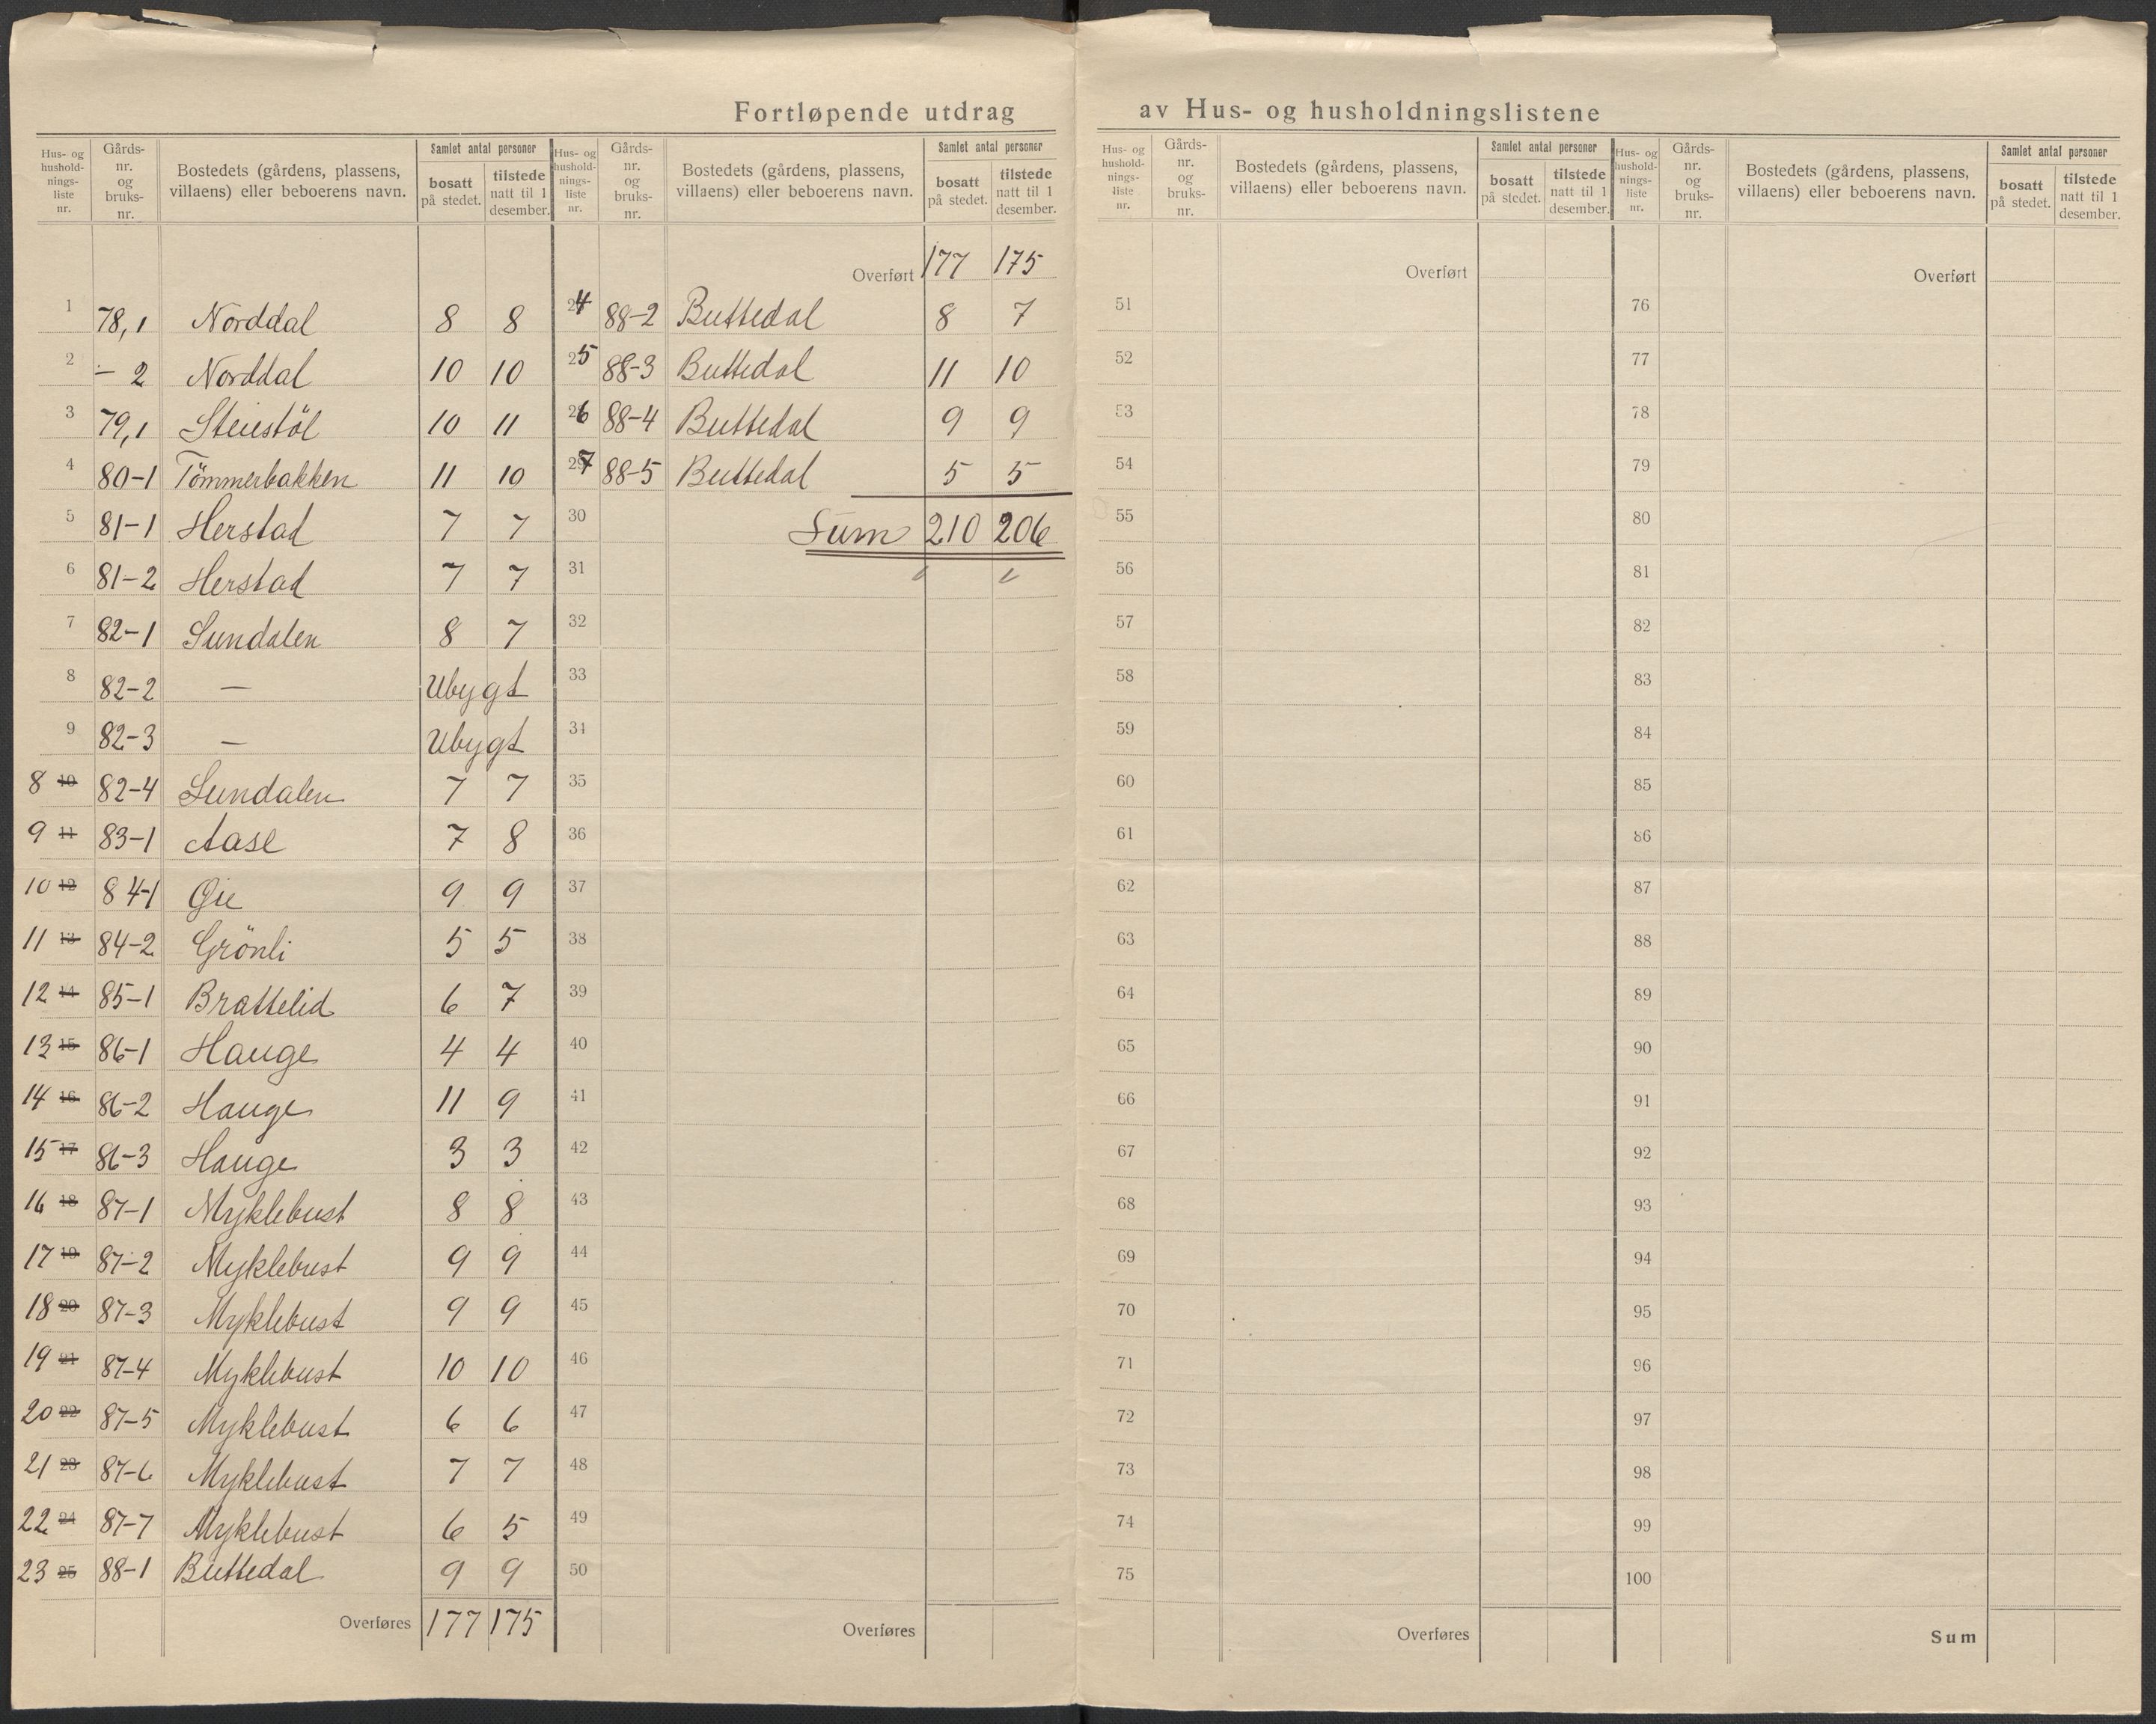 Fortløpende utdrag av Hus- og husholdningslistene
Hus- og hushold-nings-liste nr. Gårds-nr. og bruks-nr. Bostedets (gårdens, plassens, villaens) eller beboerens navn. Samlet antal personer bosatt på stedet. tilstede natt til 1 desember.
1 78,1 Norddal 8 8
2 - 2 Norddal 10 10
3 79,1 Steistöl 10 11
4 80-1 Tömmerbakken 11 10
5 81-1 Herstad 7 7
6 81-2 Herstad 7 7
7 82-1 Sundalen 8 7
8 82-2 — Ubygt
9 82-3 — Ubygt
8 10 82-4 Sundalen 7 7
9 11 83-1 Aase 7 8
10 12 84-1 Øie 9 9
11 13 84-2 Grönli 5 5
12 14 85-1 Brattelid 6 7
13 15 86-1 Hauge 4 4
14 16 86-2 Hauge 11 9
15 17 86-3 Hauge 3 3
16 18 87-1 Myklebust 8 8
17 19 87-2 Myklebust 9 9
18 20 87-3 Myklebust 9 9
19 21 87-4 Myklebust 10 10
20 22 87-5 Myklebust 6 6
21 23 87-6 Myklebust 7 7
22 24 87-7 Myklebust 6 5
23 25 88-1 Buttedal 9 9
Overføres 177 175
Hus- og hushold-nings-liste nr. Gårds-nr. og bruks-nr. Bostedets (gårdens, plassens, villaens) eller beboerens navn. Samlet antal personer bosatt på stedet. tilstede natt til 1 desember.
Overført 177 175
24 88-2 Buttedal 8 7
25 88-3 Buttedal 11 10
26 88-4 Buttedal 9 9
27 88-5 Buttedal 5 5
30 Sum 210 206
31
32
33
34
35
36
37
38
39
40
41
42
43
44
45
46
47
48
49
50
Overføres
Hus- og hushold-nings-liste nr. Gårds-nr. og bruks-nr. Bostedets (gårdens, plassens, villaens) eller beboerens navn. Samlet antal personer bosatt på stedet. tilstede natt til 1 desember.
Overført
51
52
53
54
55
56
57
58
59
60
61
62
63
64
65
66
67
68
69
70
71
72
73
74
75
Overføres
Hus- og hushold-nings-liste nr. Gårds-nr. og bruks-nr. Bostedets (gårdens, plassens, villaens) eller beboerens navn. Samlet antal personer bosatt på stedet. tilstede natt til 1 desember.
Overført
76
77
78
79
80
81
82
83
84
85
86
87
88
89
90
91
92
93
94
95
96
97
98
99
100
Sum